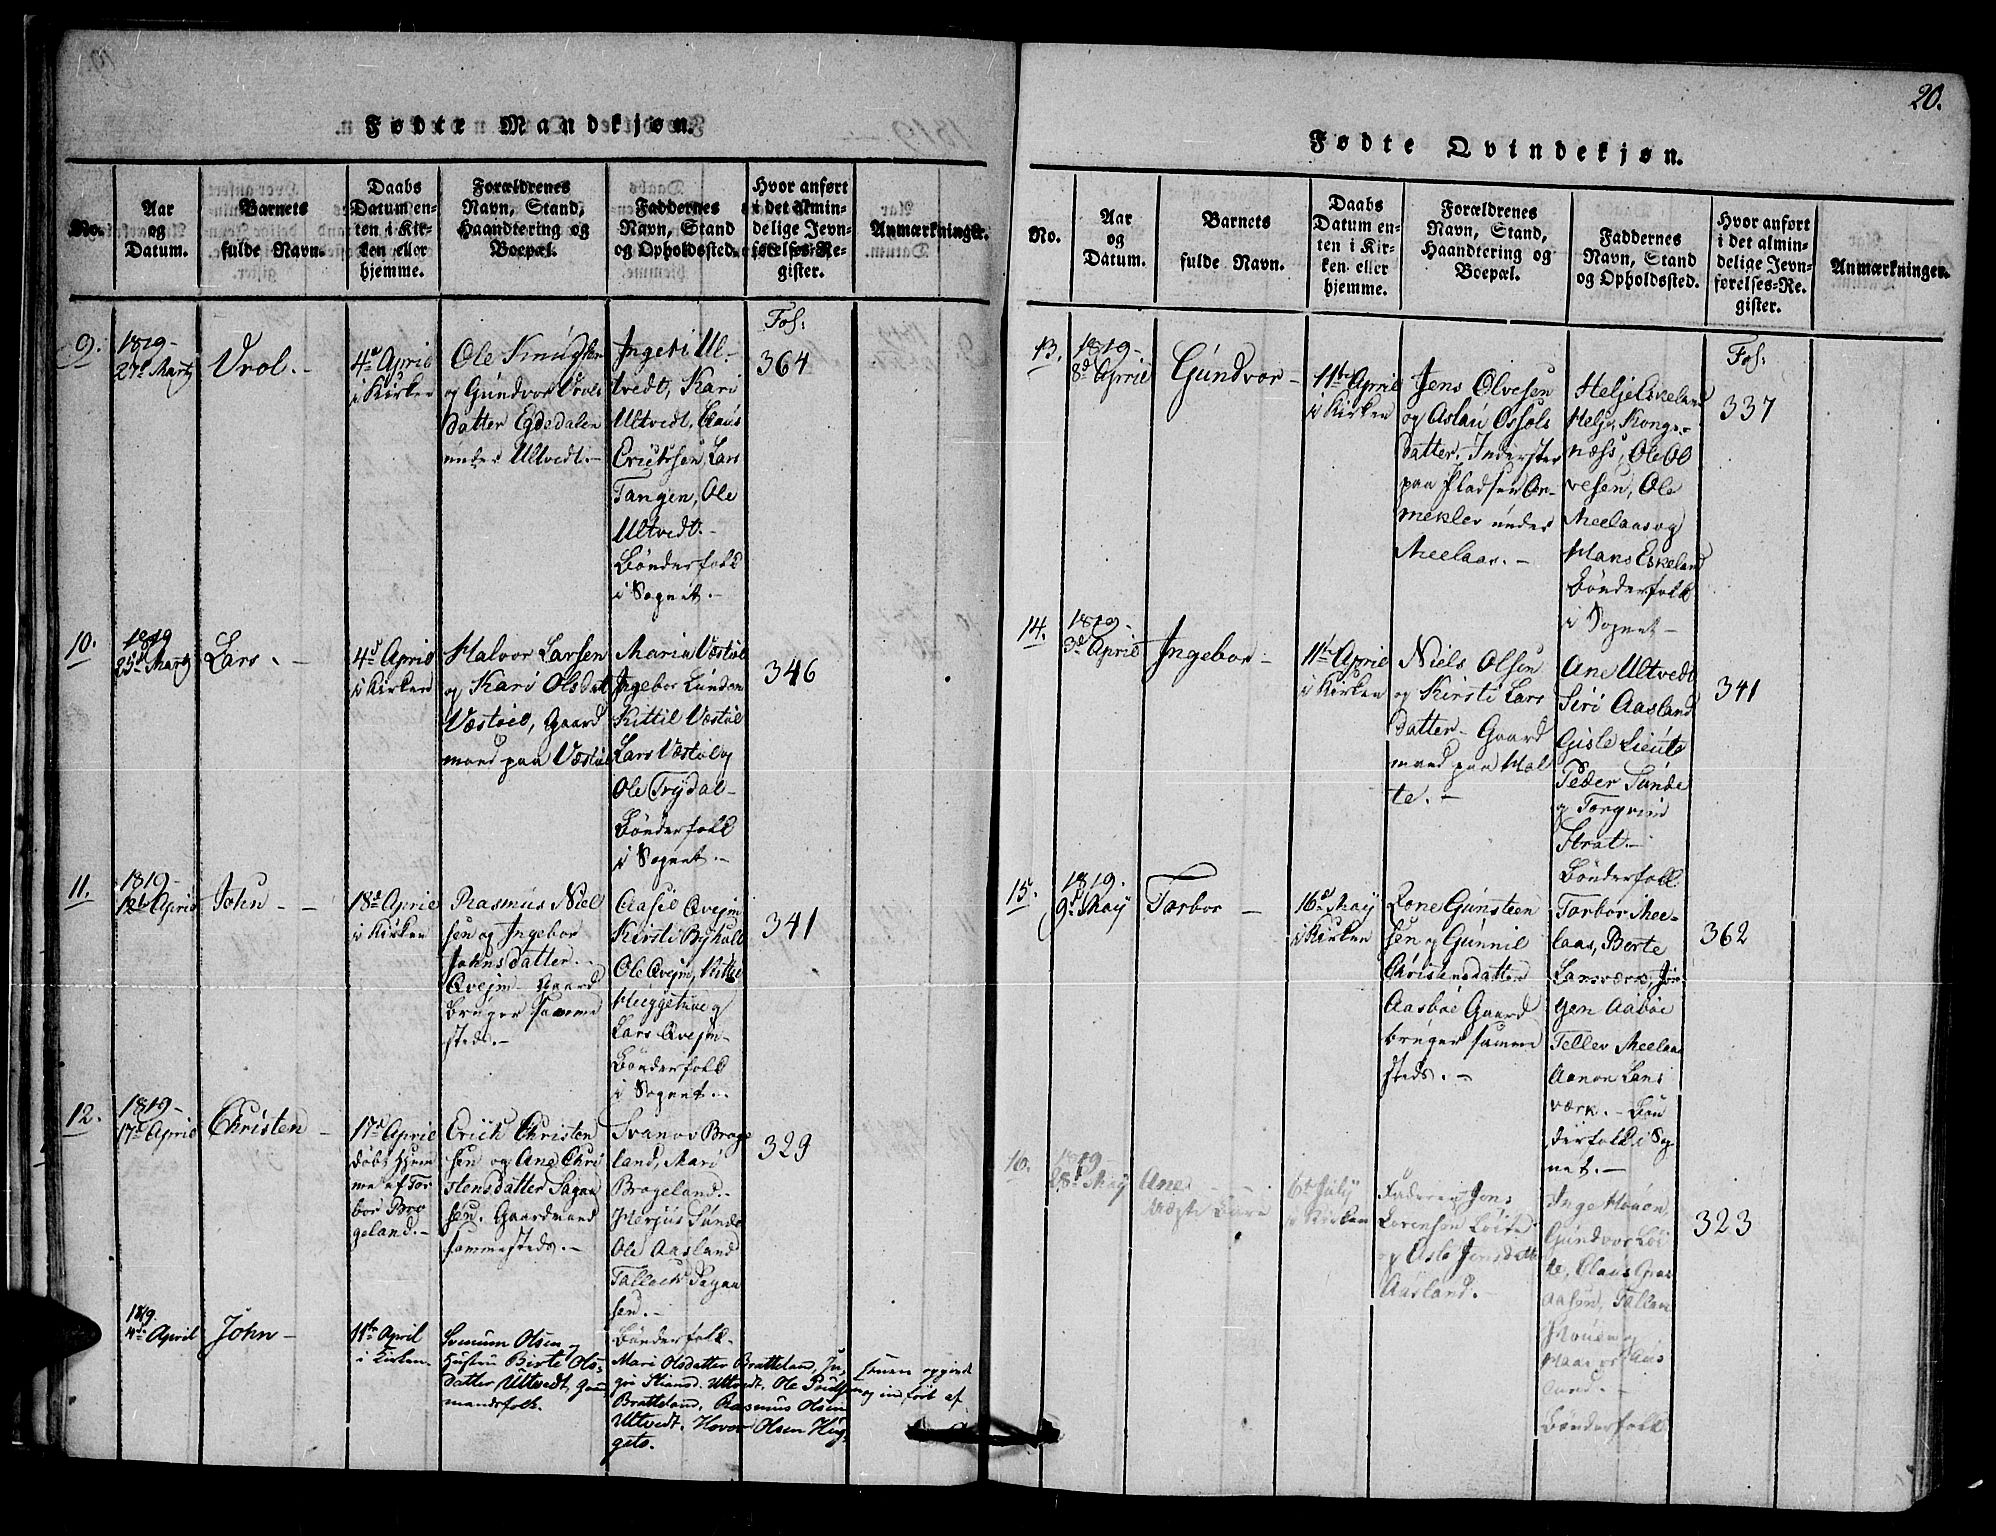 20.
Fødte Mandkjøn.
No.
Aar
og
Datum.
Barnets
fulde Navn.
Daabs
Datum en-
ten i Kir-
ken eller
hjemme.
Forældrenes
Navn, Stand,
Haandtering og
Boepæl.
Faddernes
Navn, Stand
og Opholdssted.
Hvor anført
i det almin-
delige Jevn-
førelses-Re-
gister.
Anmærkninger.
9.
1819-
27de Martz
Vrol. -
4de April
i Kirken
Ole Knudsen
og Gundvor Vrols
datter Egdedalen
under Ultvedt. -
Ingeri Ul-
tvedt, Kari
Ultvedt, Claus
Erichsen, Lars
Tangen, Ole
Ultvedt. -
Bønderfolk
i Sognet. -
Fol:
364
10.
1819
Martz
Lars. -
4de April
i Kirken
Halvor Larsen
og Kari Olsdat
Væstøl, Gaard
mand paa Væstøl
Maria Væstøl
Ingebor Lunden
Kittil Væstøl
Lars Væstøl og
Ole Trydal -
Bønderfolk
i Sognet. -
346
11.
1819-
12te April
John - -
18de April
i Kirken
Rasmus Niel
sen og Ingebor
Johnsdatter. -
Qvejm - Gaard
bruger samme
steds. -
Aasil Qvejm
Kirsti
Ole Qvejm, Kittil
og
Lars Qvejm -
Bønderfolk
i Sognet. -
341
12.
1819-
17de April
Christen -
17de April
døbt hjem
me af Tor
bor Bro
geland. -
Erich Christen
sen og Ane Chri
stensdatter
Gaardmand
sammesteds. -
Svanov Broge
land, Mari
Brogeland. -
Herjus Sunde
Ole Aasland
Tallack
Bønderfolk.
329
1819.
4de April
John -
11te April
i Kirken.
Olsen og
Hustru Birte Ols-
datter Ultvedt, Gaard
mandsfolk.
Mari Olsdatter Bratteland,
Ultvedt, Ole
Bratteland, Rasmus Olsen
Ultvedt, Hovor Olsen Hug-
gets.
opgivet
og indført af
Fødte Qvindekjøn.
No.
Aar
og
Datum.
Barnets
fulde Navn.
Daabs
Datum en-
ten i Kir-
ken eller
hjemme.
Forældrenes
Navn, Stand,
Haandtering og
Boepæl.
Faddernes
Navn, Stand
og Opholdssted.
Hvor anført
i det almin-
delige Jevn-
førelses-Re-
gister.
Anmærkninger.
13.
1819-
8de April
Gundvor -
11te April
i Kirken
Jens Olvesen
og Aslau Ossols
datter, Inderster
paa Pladsen Or-
mekler under
Meelaas. -
Helje Eskeland
Helje Konge-
næss, Ole Ol
vesen, Ole
Meelaas og
Hans Eskeland
Bønderfolk
i Sognet -
Fol:
337
14.
1819-
3de April
Ingebor -
11te April
i Kirken
Niels Olsen
og Kirsti Lars
datter - Gaard
mand paa Hol
te. -
Ane Ultvedt
Siri Aasland
Gisle
Peder Sunde
og Torgrim
Strat. -
Bønderfolk
341
15.
1819.
9de May
Torbor -
16de May
i Kirken
Lone Gunsteen
sen og Gunnil
Christensdatter
Aasbøe Gaard
bruger samme
steds. -
Torbor Mee-
laas, Berte
Lansværk, Jør-
gen Aabøe
Tellev Meelaas
Aanon Lans
værk. - Bøn
derfolk i Sog
net. -
362
16.
1819
28de May
Ane - -
Uægte Barn
6te July
i Kirken
Faderen Jens
Lorensen Løite
og Aslo Jensdatt
Aasland. -
Inge Mouen
Gundvor Løi
te, Claus
Mouen og
land. -
Bønderfolk
323